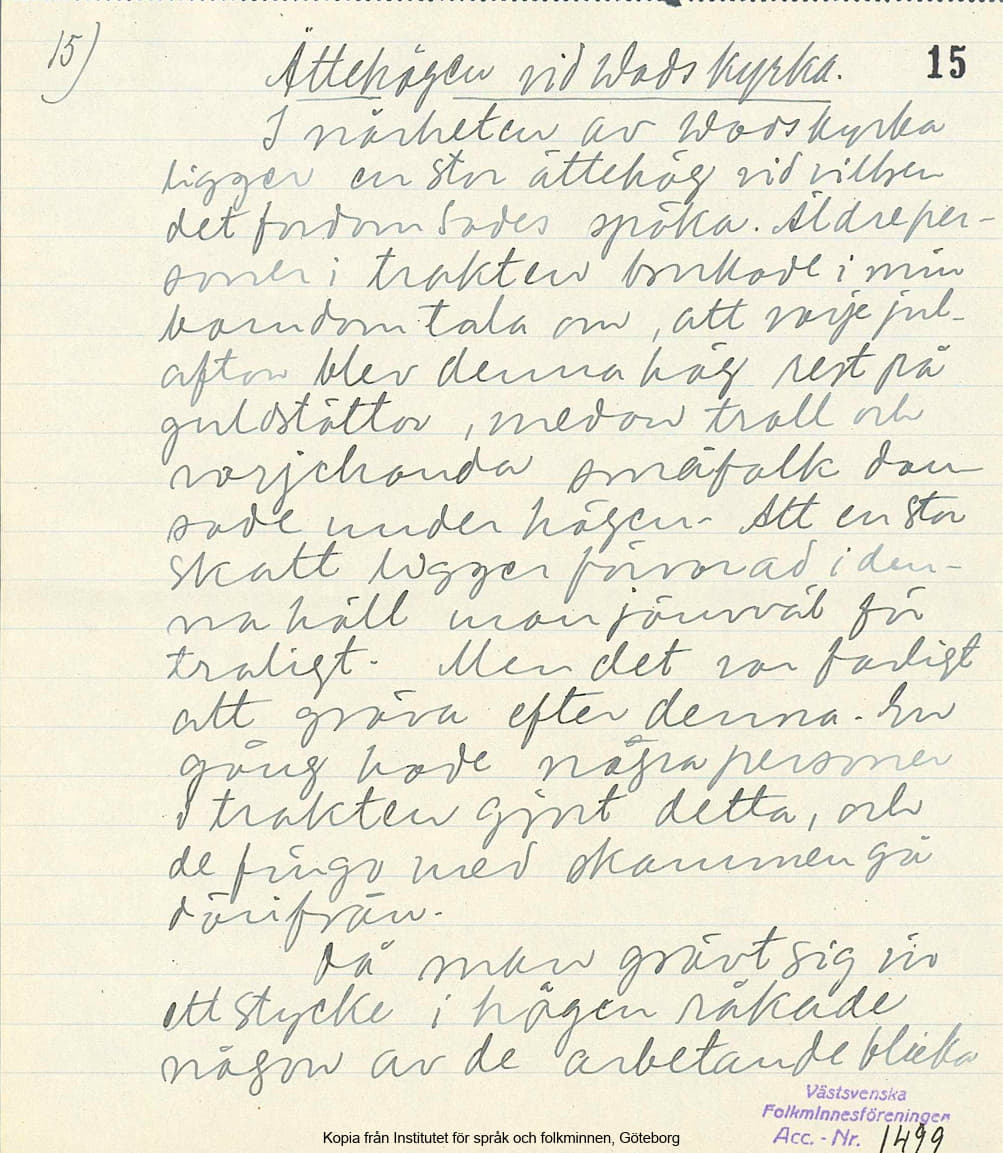 15)
Ättehögen vid Wads kyrka.
15
I närheten av Wads kyrka
ligger en stor ättehög vid vilken
det fordom sades spöka. Äldre per-
soner i trakten brukade i min
barndom tala om, att varje jul-
afton blev denna hög rest på
guldstöttor, medan troll och
varjehanda småfolk dan
sade under högen. Att en stor
skatt ligger förvarad i den-
na höll man jämväl för
troligt. Men det var farligt
att gräva efter denna. En
gång hade några personer
i trakten gjort detta, och
de fingo med skammen gå
därifrån.
Då man grävt sig in
ett stycke i högen råkade
någon av de arbetande blicka
Västsvenska
Folkminnesföreningen
Acc. - Nr. 1499
Kopia från Institutet för språk och folkminnen, Göteborg